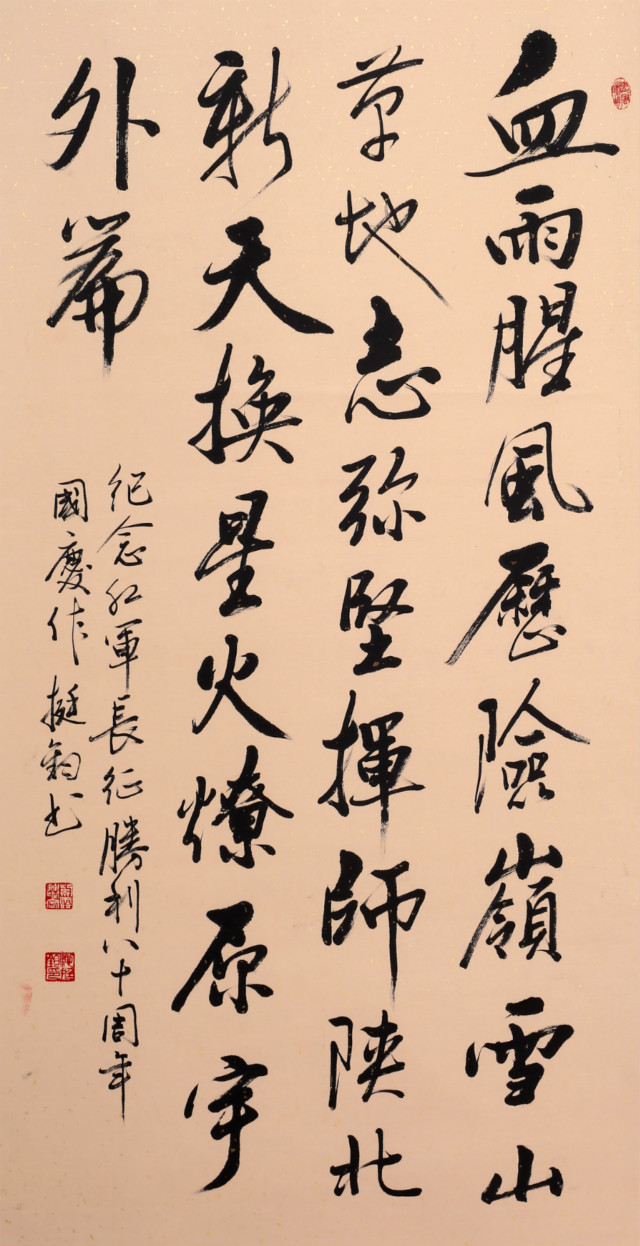 血雨腥風歷險嶺雪山
草地志弥堅揮師陝北
新天換星火燎原宇
外篇
紀念红軍長征勝利八十周年
國慶作 挺鈞书